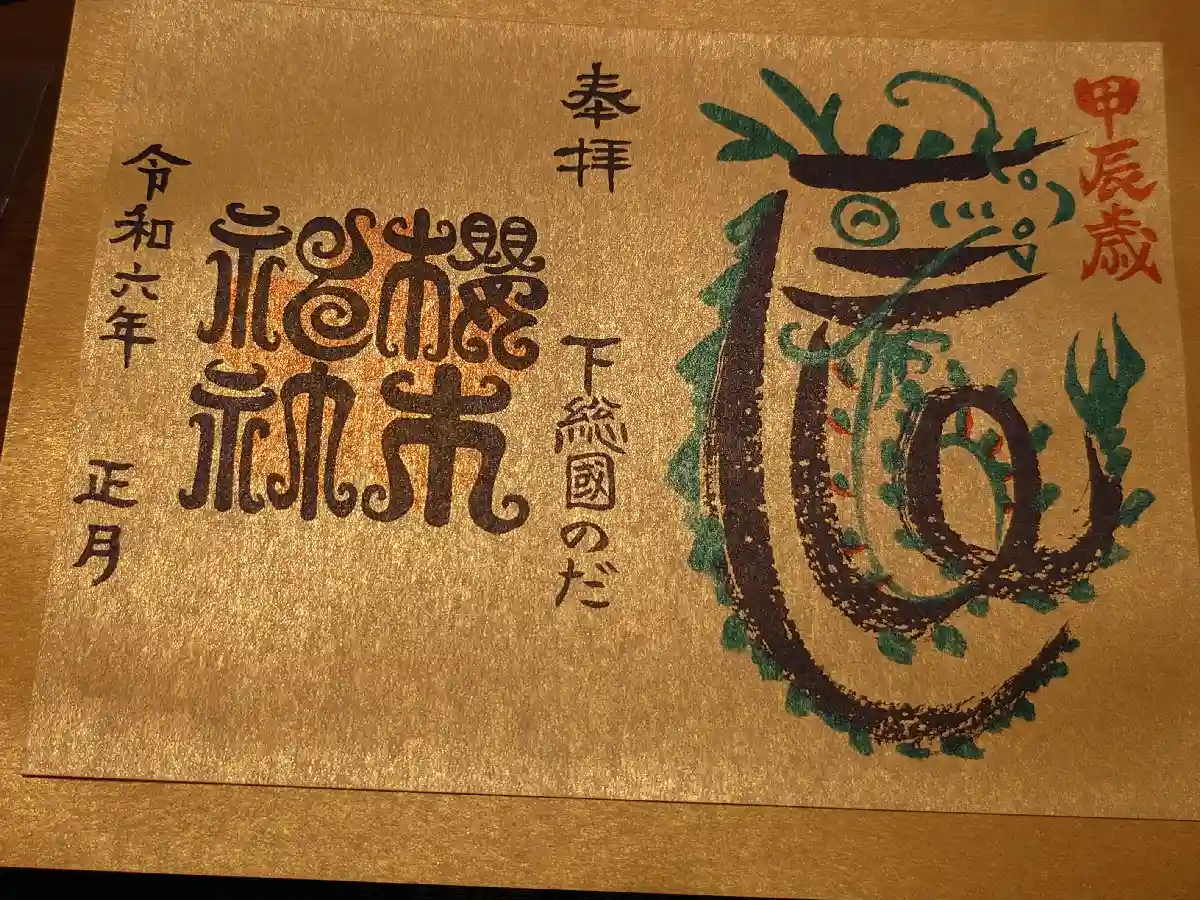 甲辰歳
奉拝
下総國のだ
櫻木
神社
令和六年 正月